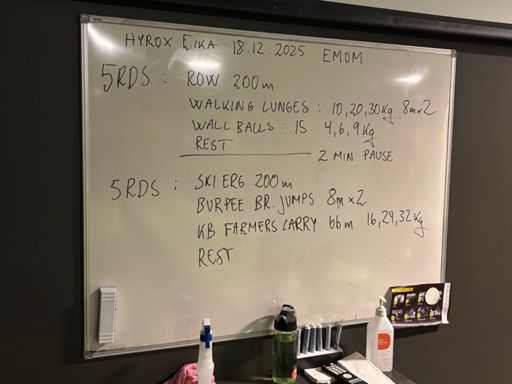 HYROX EIKA 18.12.2025 EMOM.
5RDS : ROW 200m
WALKING LUNGES : 10,20,30Kg 8m×2
WALL BALLS : 15 : 4,6,9Kg
REST
2 MIN PAUSE
5RDS : SKI ERG 200m
BURPEE BR. JUMPS 8m×2
KB FARMERS CARRY 66m 16,24,32Kg
REST